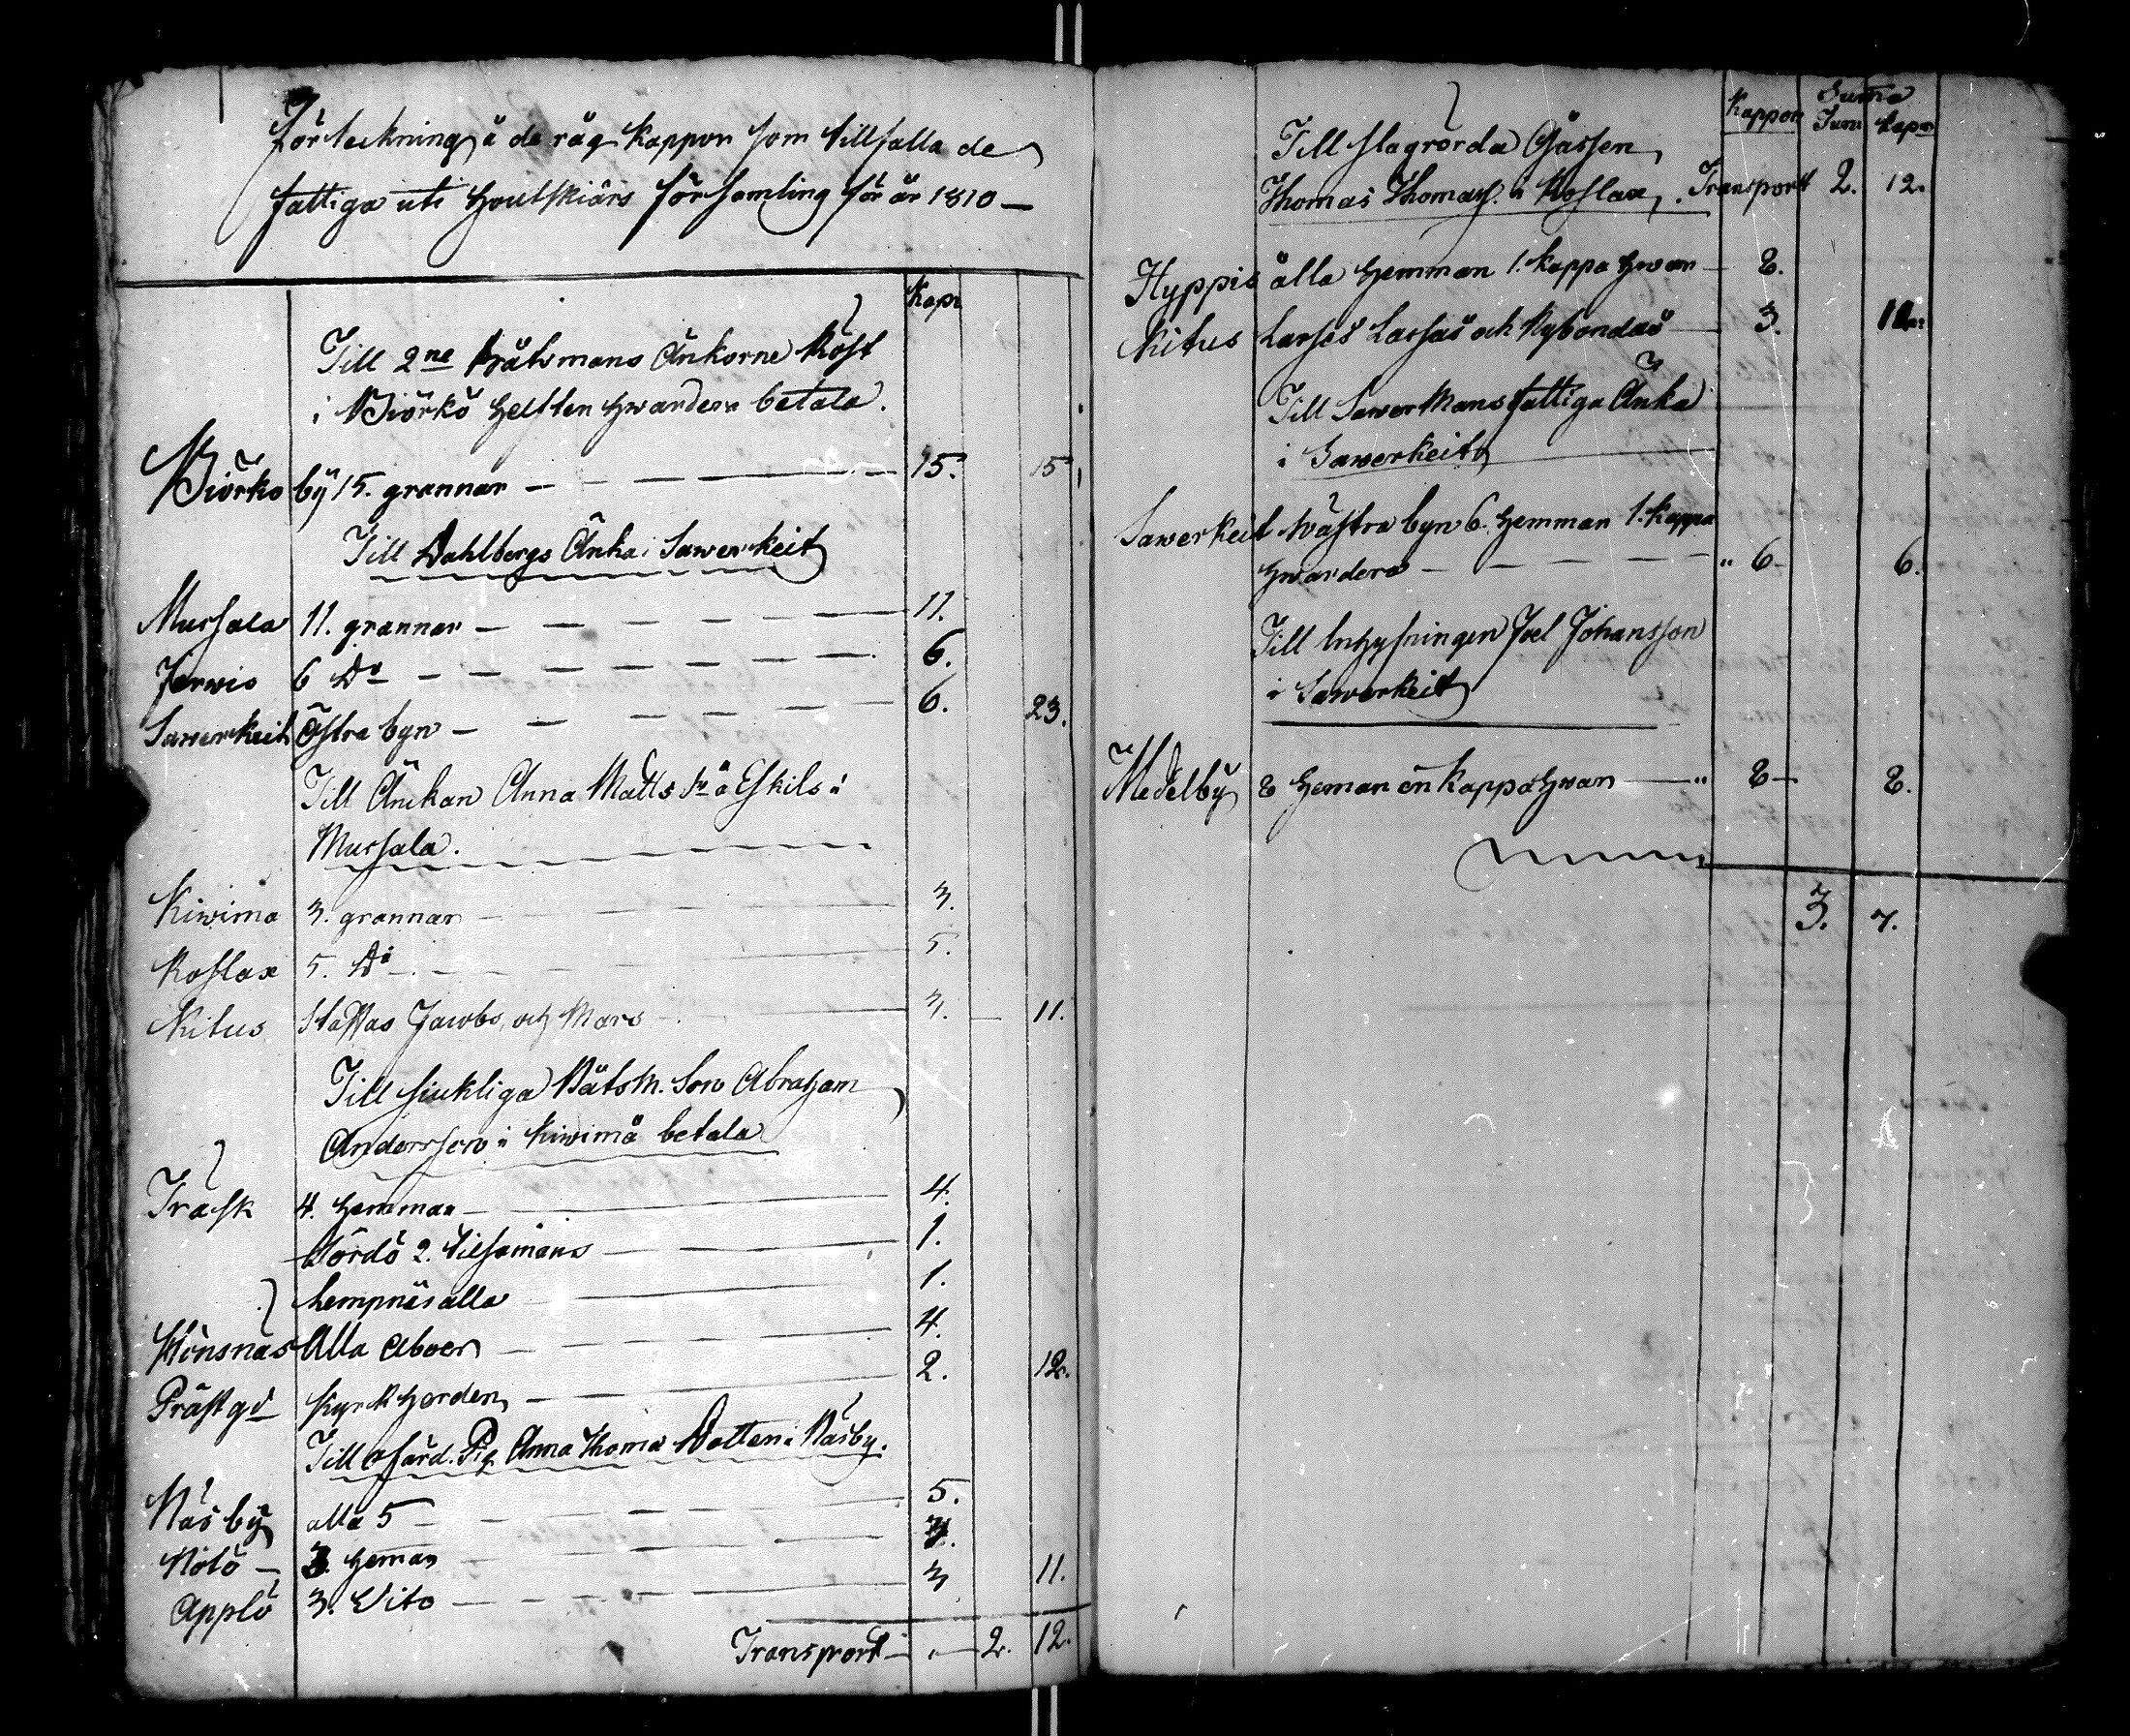 Förteckning å de råg kappor som tillfalla de
fattiga uti Houtskiärs församling för år 1810 —
Kapr
Till 2ne Båtsmans Änkorne Röst
i Biörkö Helften hwardera betala.
Biörko by 15. grannar — 15. 15
Till Dahlbergs Änka i Sawerkeit
Mussala 11. grannar — 11.
Jerwis 6 Do — 6.
Sawerkeit Östra byn — 6. 23.
Till Änckan Anna Matts dr å Eskils i
Mussala.
Kiwimo 3. grannar — 3.
Roslax 5. Do — 5.
Kitus Staffas Jacobs och Mars — 3. 11.
Till siukliga Båtsm. Son Abraham
Andersson i Kiwimo betala
Träsk 4. Hemman — 4.
Nördö 2. tilsamans — 1.
Lempnäs alla — 1.
Hönsnäs Alla Aboer — 4.
Prästgd Kyrkherden — 2. 12.
Till ofärd. Pig. Anna Thomä Dotter i Näsby.
Näsby alla 5 — 5.
Nölö — 3. Heman — 3.
Applö 3. Dito — 3 11.
Transport — 2. 12.
Kappor Suma
Tunr Kapr
Till slagrörda Gåssen
Thomas Thomass. i Roslax. Transport 2. 12.
Hyppis alla Hemman 1. kappa hwar — 8.
Kitus Larses Lassas och Nybondas — 3. 11.
Till Sawer Mans fattiga Änka
i Sawerkeit
Sawerkeit Wästra byn 6. Hemman 1. kappa
hwardera — " 6 — 6.
Till Inhysningen Joel Johansson
i Sawerkeit
Medelby 8 Heman en kappa hwar — " 8 — 8.
3. 7.